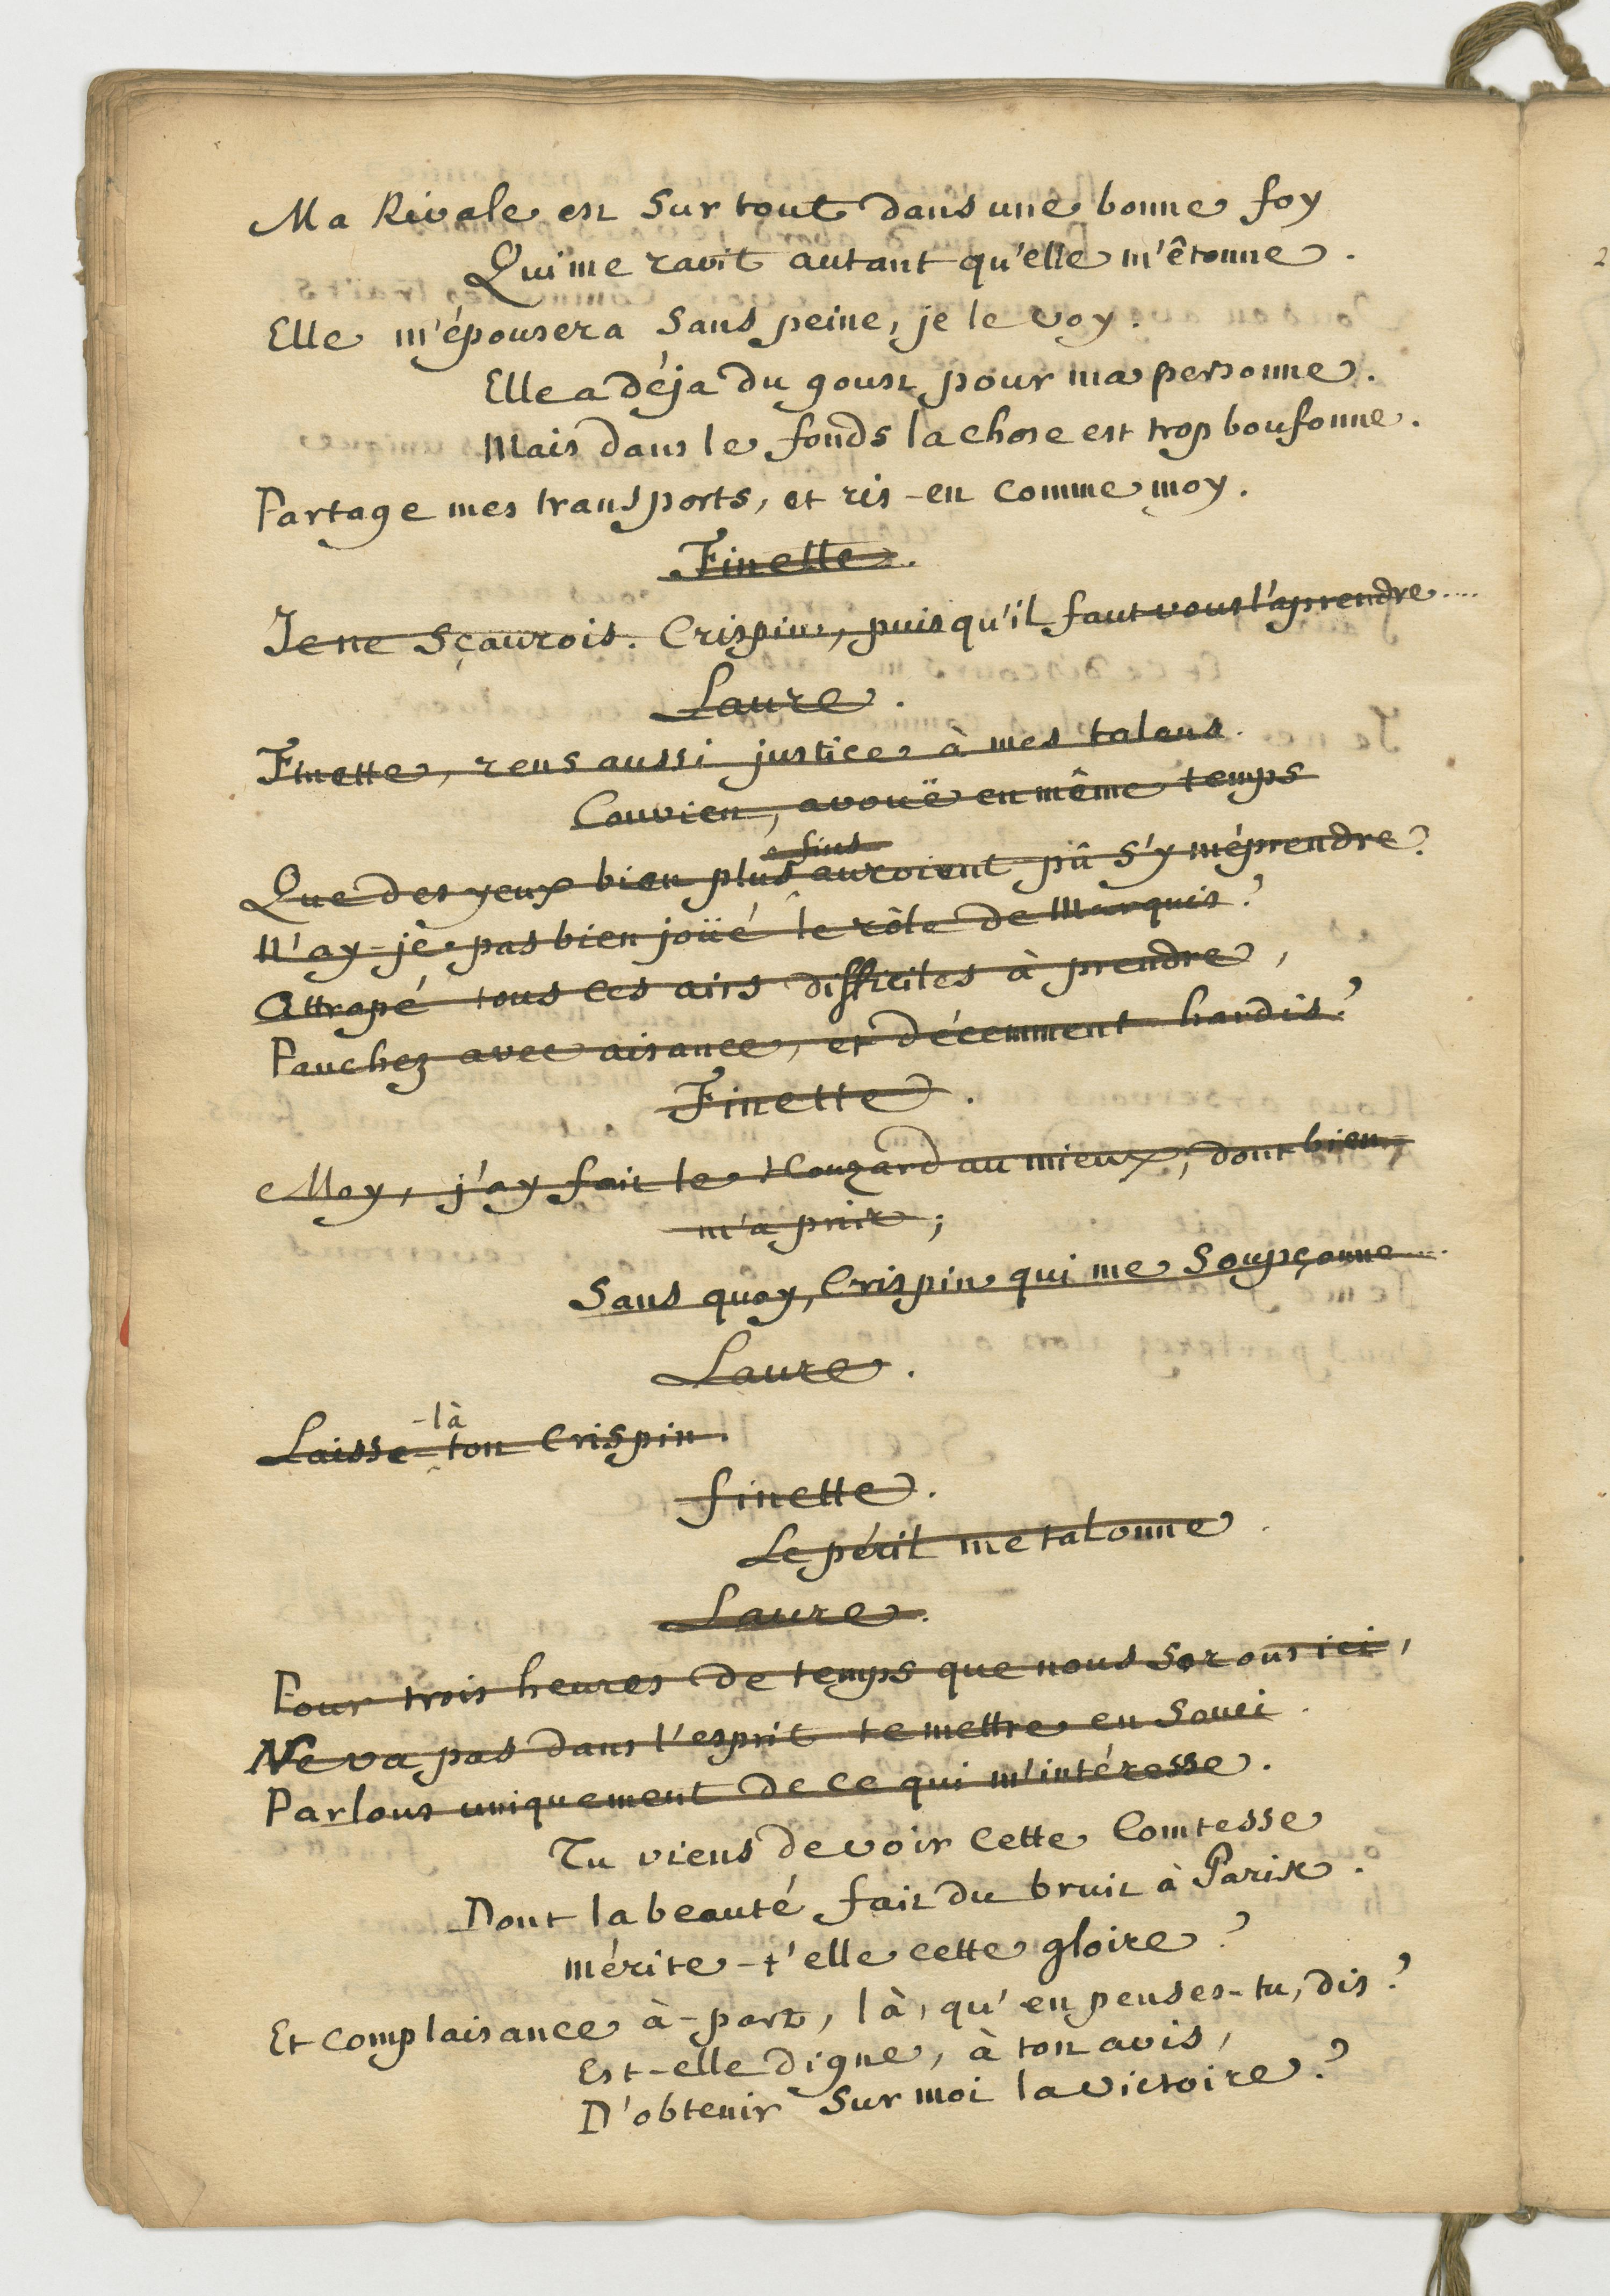 Ma Rivale est Sur tout dans une bonne foy
Qui me ravit autant qu'elle m'êtonne.
Elle m'épousera Sans peine, je le voy.
Elle a déja du goust pour ma personne.
Mais dans le fonds la chose est trop boufonne.
Partage mes transports, et ris-en comme moy.
Finette.
Je ne Sçaurois. Crispin, puisqu'il faut vous l'aprendre....
Laure.
Finette, rens aussi justice à mes talens.
Convien, avouë en même temps
Que des yeux bien plus fins auroient pû S'y méprendre?
N'ay-je pas bien joüé le rôle de Marquis?
Attrapé tous ces airs difficiles à prendre,
Panchez avec aisance, et décemment hardis?
Finette.
Moy, j'ay fait le Houzard au mieux, dont bien
m'a prit;
Sans quoy, Crispin qui me Soupçonne....
Laure.
Laisse-là ton Crispin.
finette.
Le péril me talonne.
Laure.
Pour trois heures de temps que nous Serons ici,
Ne va pas dans l'esprit te mettre en Souci.
Parlons uniquement de ce qui m'intéresse.
Tu viens de voir cette Comtesse
Dont la beauté fait du bruit à Paris.
mérite-t'elle cette gloire?
Et complaisance à-part, là, qu'en penses-tu, dis?
Est-elle digne, à ton avis,
D'obtenir Sur moi la victoire?
2